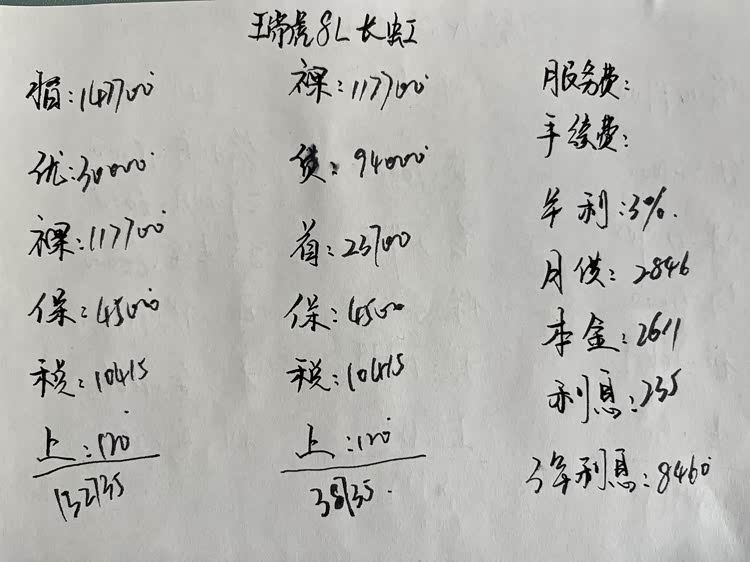 王常虎8L 长虹
指:147700
优:30000
裸:117700
保:4500
税:10415
上:120
132735
裸:117700
贷:94000
首:23700
保:4500
税:10415
上:120
38735.
月服务费:
手续费:
年利:3%.
月供:2846
本金:2611
利息:235
3年利息:8460